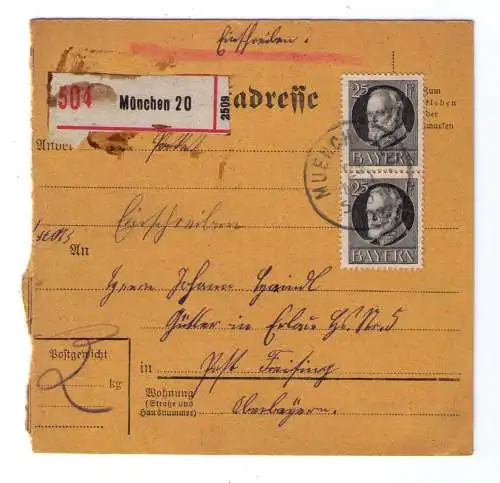 Einschreiben.
504
München 20
2509
adresse
Zum
kleben
der
marken
25 Pf
BAYERN
25 Pf
BAYERN
MUENCH
Einschreiben
An
Herrn Johann
Gütler in Erlau Hs. Nr. 5
Postgewicht
kg
2
in
Post Freising
Wohnung
(Straße und
Hausnummer)
Oberbayern.